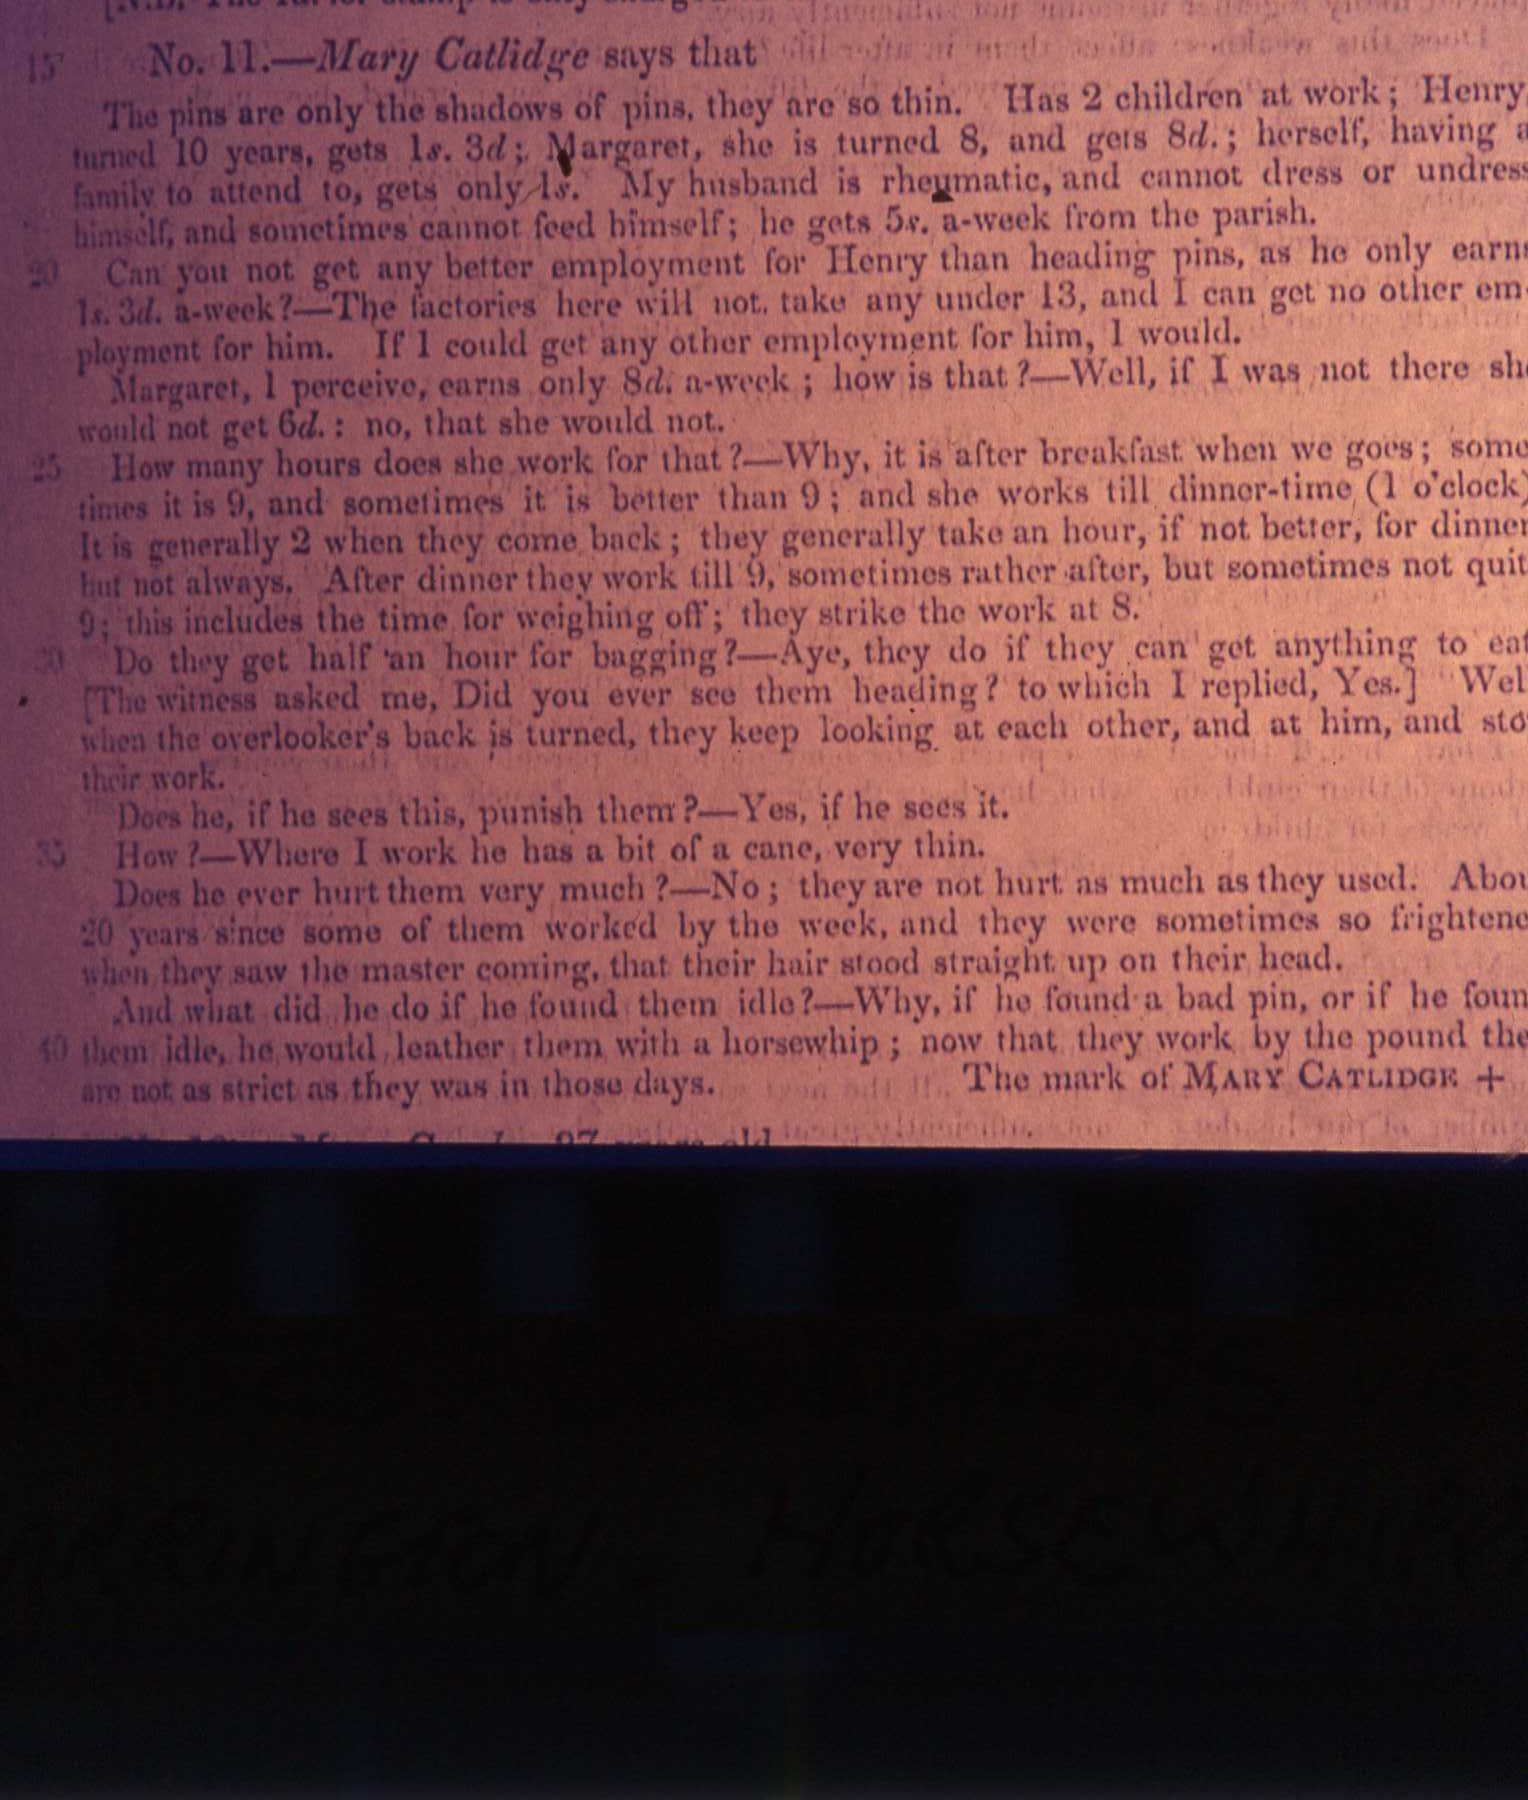 15 No. 11.—Mary Catlidge says that
The pins are only the shadows of pins, they are so thin. Has 2 children at work; Henry
turned 10 years, gets 1s. 3d; Margaret, she is turned 8, and gets 8d.; herself, having a
family to attend to, gets only 1s. My husband is rheumatic, and cannot dress or undress
himself, and sometimes cannot feed himself; he gets 5s. a-week from the parish.
20 Can you not get any better employment for Henry than heading pins, as he only earns
1s. 3d. a-week?—The factories here will not take any under 13, and I can get no other em-
ployment for him. If I could get any other employment for him, I would.
Margaret, I perceive, earns only 8d. a-week; how is that?—Well, if I was not there she
would not get 6d.: no, that she would not.
25 How many hours does she work for that?—Why, it is after breakfast when we goes; some
times it is 9, and sometimes it is better than 9; and she works till dinner-time (1 o'clock)
It is generally 2 when they come back; they generally take an hour, if not better, for dinner
but not always. After dinner they work till 9, sometimes rather after, but sometimes not quit
9; this includes the time for weighing off; they strike the work at 8.
30 Do they get half an hour for bagging?—Aye, they do if they can get anything to eat
[The witness asked me, Did you ever see them heading? to which I replied, Yes.] Wel
when the overlooker's back is turned, they keep looking at each other, and at him, and sto
their work.
Does he, if he sees this, punish them?—Yes, if he sees it.
35 How?—Where I work he has a bit of a cane, very thin.
Does he ever hurt them very much?—No; they are not hurt as much as they used. Abou
20 years since some of them worked by the week, and they were sometimes so frightene
when they saw the master coming, that their hair stood straight up on their head.
And what did he do if he found them idle?—Why, if he found a bad pin, or if he foun
40 them idle, he would leather them with a horsewhip; now that they work by the pound the
are not as strict as they was in those days. The mark of MARY CATLIDGE +
HORSEWHIP